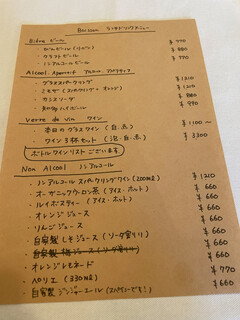 Boisson ランチドリンクメニュー
Bière ビール ¥770
・生ビール
・クラフトビール ¥880
・ノンアルコールビール ¥770
Alcool Apéritif アルコール アペリティフ
・グラススパークリング ¥1210
・ミモザ (スパークリング・オレンジ) ¥1210
・カシスソーダ ¥880
・ハイボール ¥990
Verre de vin ワイン
・本日のグラスワイン (白.赤) ¥1100〜
・ワイン3杯セット (泡.白.赤) ¥3300
ボトルワインリストございます
Non Alcool ノンアルコール
・ノンアルコールスパークリングワイン (200ml) ¥1210
・オーガニックウーロン茶 (アイス・ホット) ¥660
・ルイボスティー (アイス・ホット) ¥660
・オレンジジュース ¥660
・りんごジュース ¥660
・自家製しそジュース (ソーダ割り) ¥660
・自家製梅ジュース (ソーダ割り) ¥660
・オレンジレモネード ¥660
・ペリエ (330ml) ¥770
・自家製ジンジャーエール (スパイシーです!) ¥660